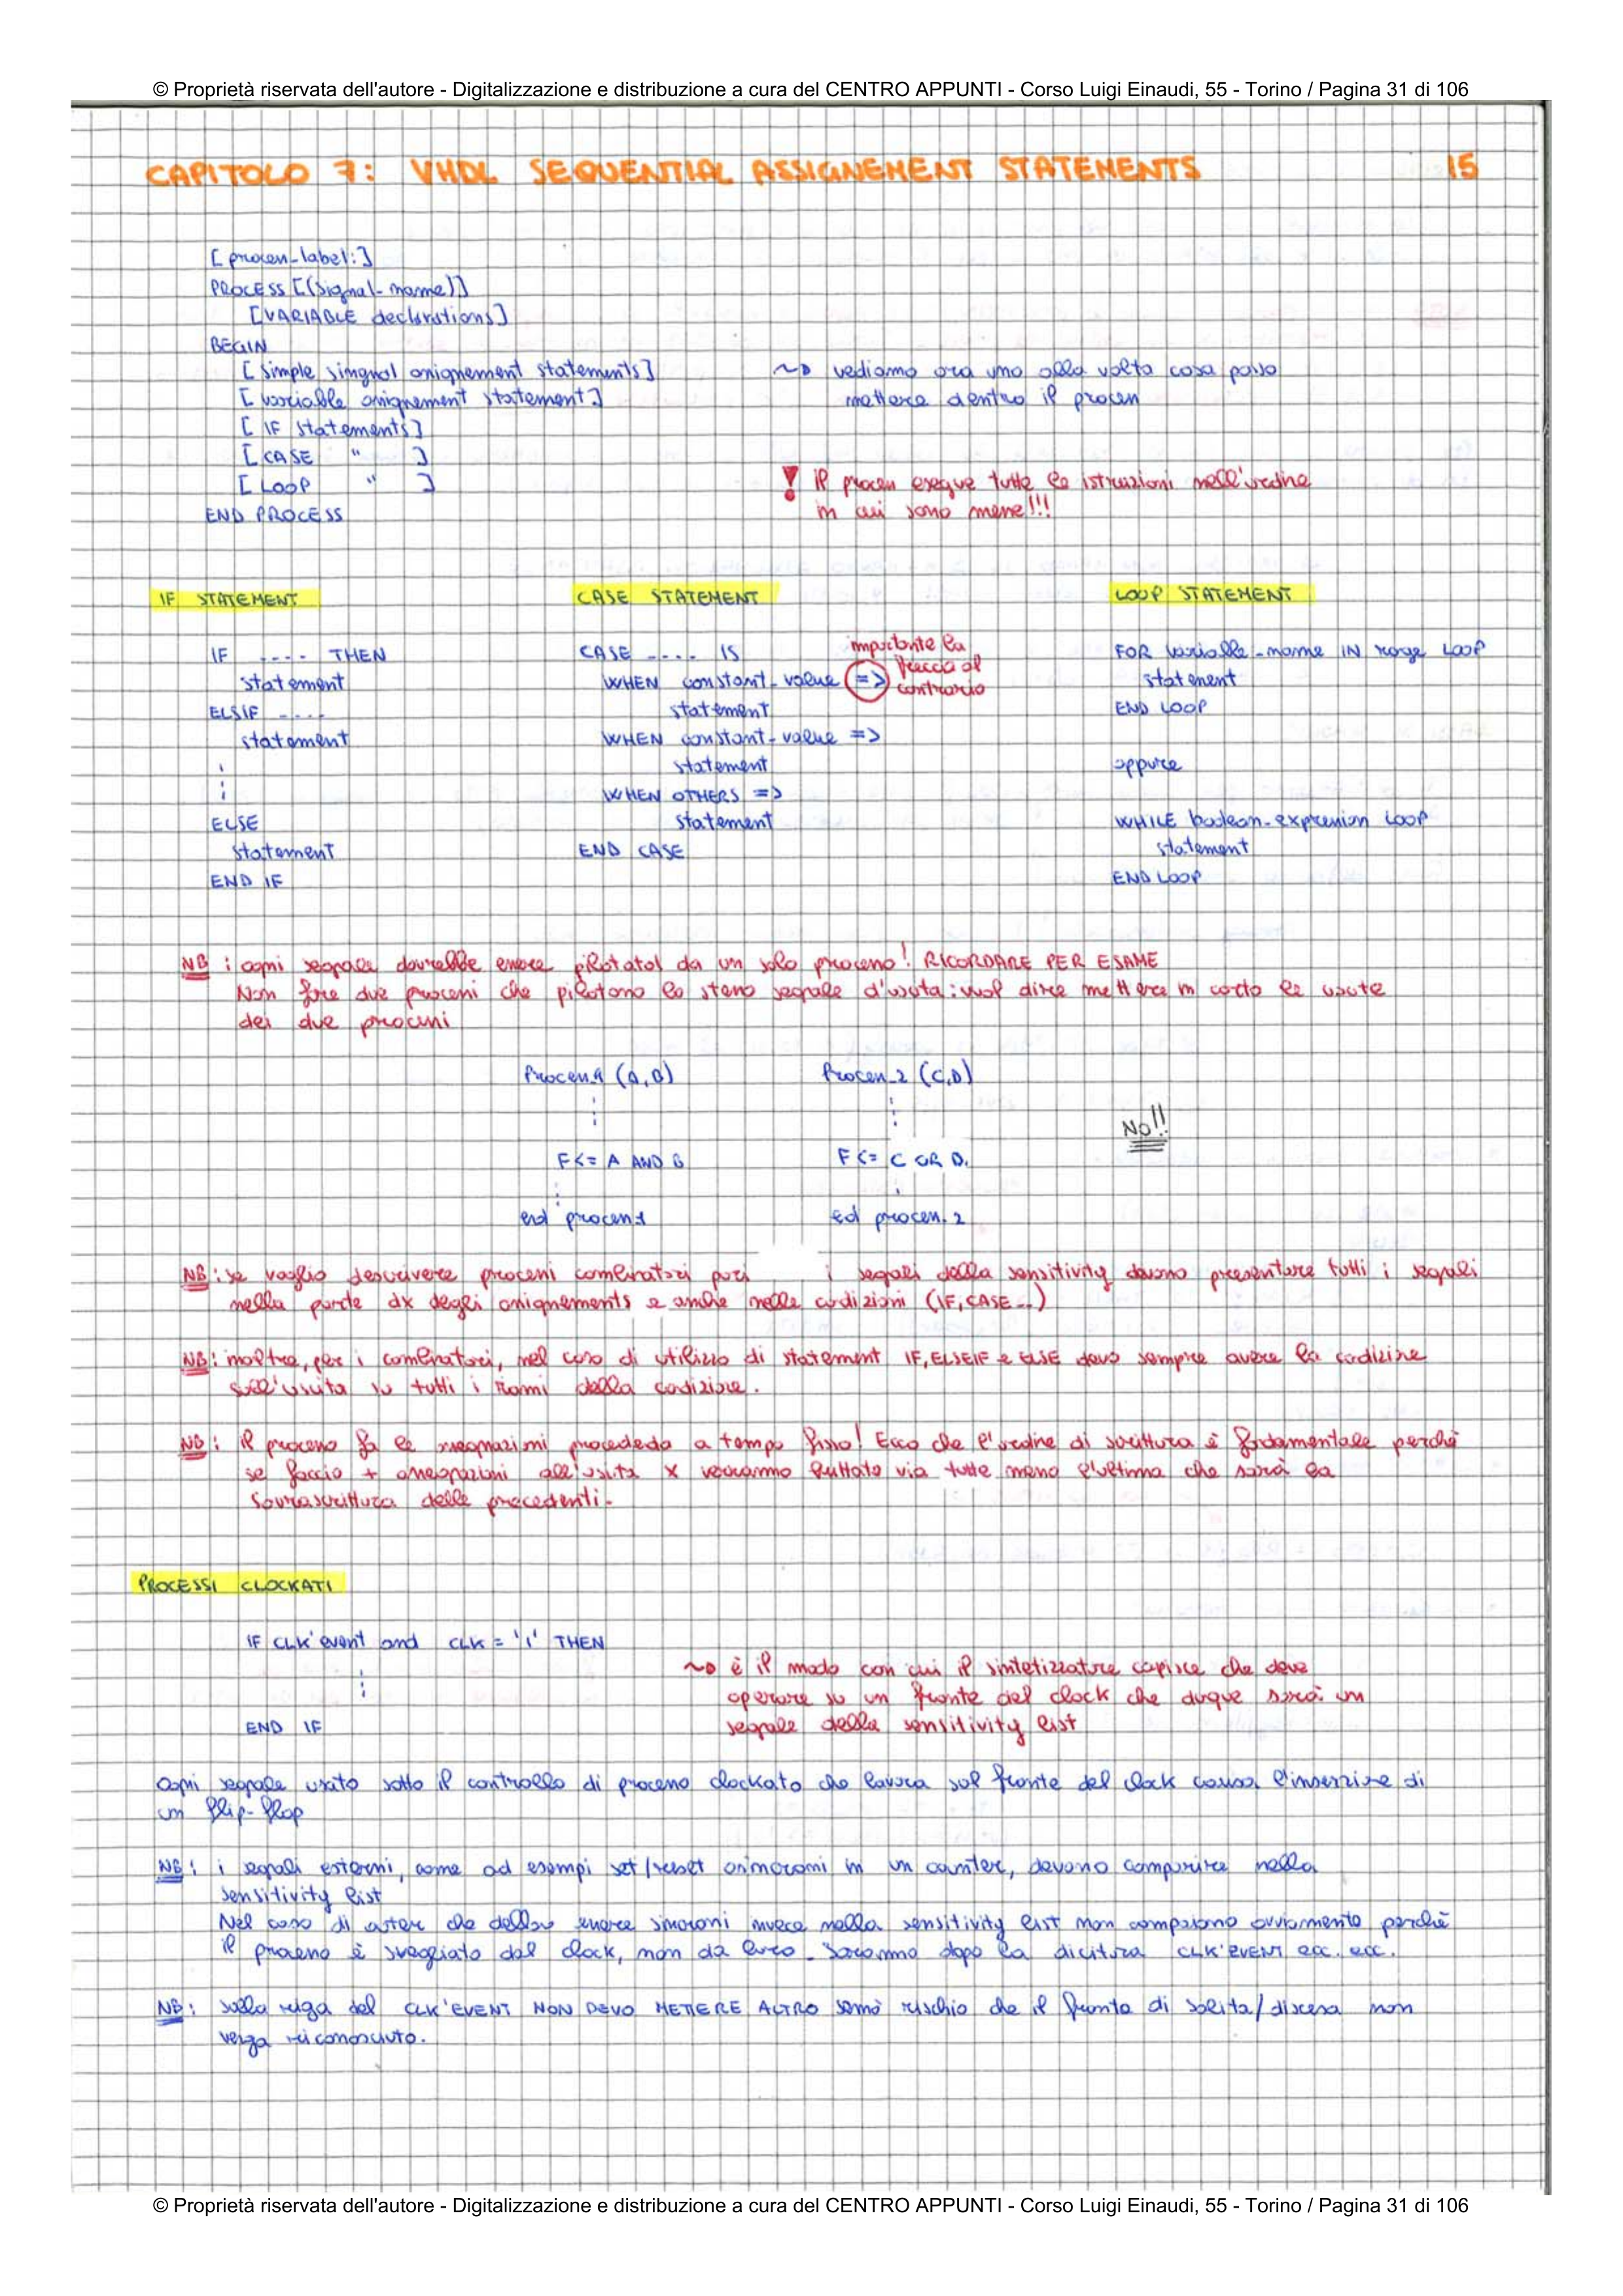 © Proprietà riservata dell'autore - Digitalizzazione e distribuzione a cura del CENTRO APPUNTI - Corso Luigi Einaudi, 55 - Torino / Pagina 31 di 106
CAPITOLO 7: VHDL SEQUENTIAL ASSIGNEMENT STATEMENTS 15
[process_label:]
PROCESS [(signal-name)]
[VARIABLE declarations]
BEGIN
[simple singnal assignement statements]
~> vediamo ora uno alla volta cosa posso
[variable assignement statement]
mettere dentro il process
[IF statements]
[CASE " ]
[LOOP " ]
! il process esegue tutte le istruzioni nell'ordine
END PROCESS
in cui sono messe!!!
IF STATEMENT
IF .... THEN
statement
ELSIF ....
statement
ELSE
statement
END IF
CASE STATEMENT
CASE .... IS
WHEN constant-value =>
importante la
freccia al
contrario
statement
WHEN constant-value =>
statement
WHEN OTHERS =>
statement
END CASE
LOOP STATEMENT
FOR variable-name IN range LOOP
statement
END LOOP
oppure
WHILE boolean-expression LOOP
statement
END LOOP
NB: ogni segnale dovrebbe essere pilotato da un solo processo! RICORDARE PER ESAME
Non fare due processi che pilotano lo stesso segnale d'uscita: vuol dire mettere in corto le uscite
dei due processi
Process_1 (A,B) Process_2 (C,D)
No!!
F<= A AND B F<= C OR D.
end process1 ed process.2
NB: se voglio descrivere processi combinatori puri i segnali della sensitivity devono presentare tutti i segnali
nella parte dx degli assignements e anche nelle codizioni (IF, CASE..)
NB: inoltre, per i combinatori, nel caso di utilizzo di statement IF, ELSEIF e ELSE devo sempre avere la codizine
sull'uscita su tutti i rami della codizione.
NB: il processo fa le assegnazioni procededo a tempo fisso! Ecco che l'ordine di scrittura è fodamentale perché
se faccio + assegnazioni all'uscita x verranno buttate via tutte meno l'ultima che sarà la
sovrascrittura delle precedenti.
PROCESSI CLOCKATI
IF CLK'event and CLK = '1' THEN
~> è il modo con cui il sintetizzatore capisce che deve
operare su un fronte del clock che duque sarà un
END IF
segnale della sensitivity list
Ogni segnale usato sotto il controllo di processo clockato che lavora sul fronte del clock causa l'inserzione di
un flip-flop
NB: i segnali esterni, come ad esempi set/reset asincroni in un counter, devono comparire nella
sensitivity list
Nel caso di che debbano essere sincroni invece nella sensitivity list non compaiono ovviamente perché
il processo è svegliato dal clock, non da loro. Saranno dopo la dicitura CLK'EVENT ecc. ecc.
NB: sulla riga del CLK'EVENT NON DEVO METTERE ALTRO sennò rischio che il fronte di salita/discesa non
venga riconosciuto.
© Proprietà riservata dell'autore - Digitalizzazione e distribuzione a cura del CENTRO APPUNTI - Corso Luigi Einaudi, 55 - Torino / Pagina 31 di 106